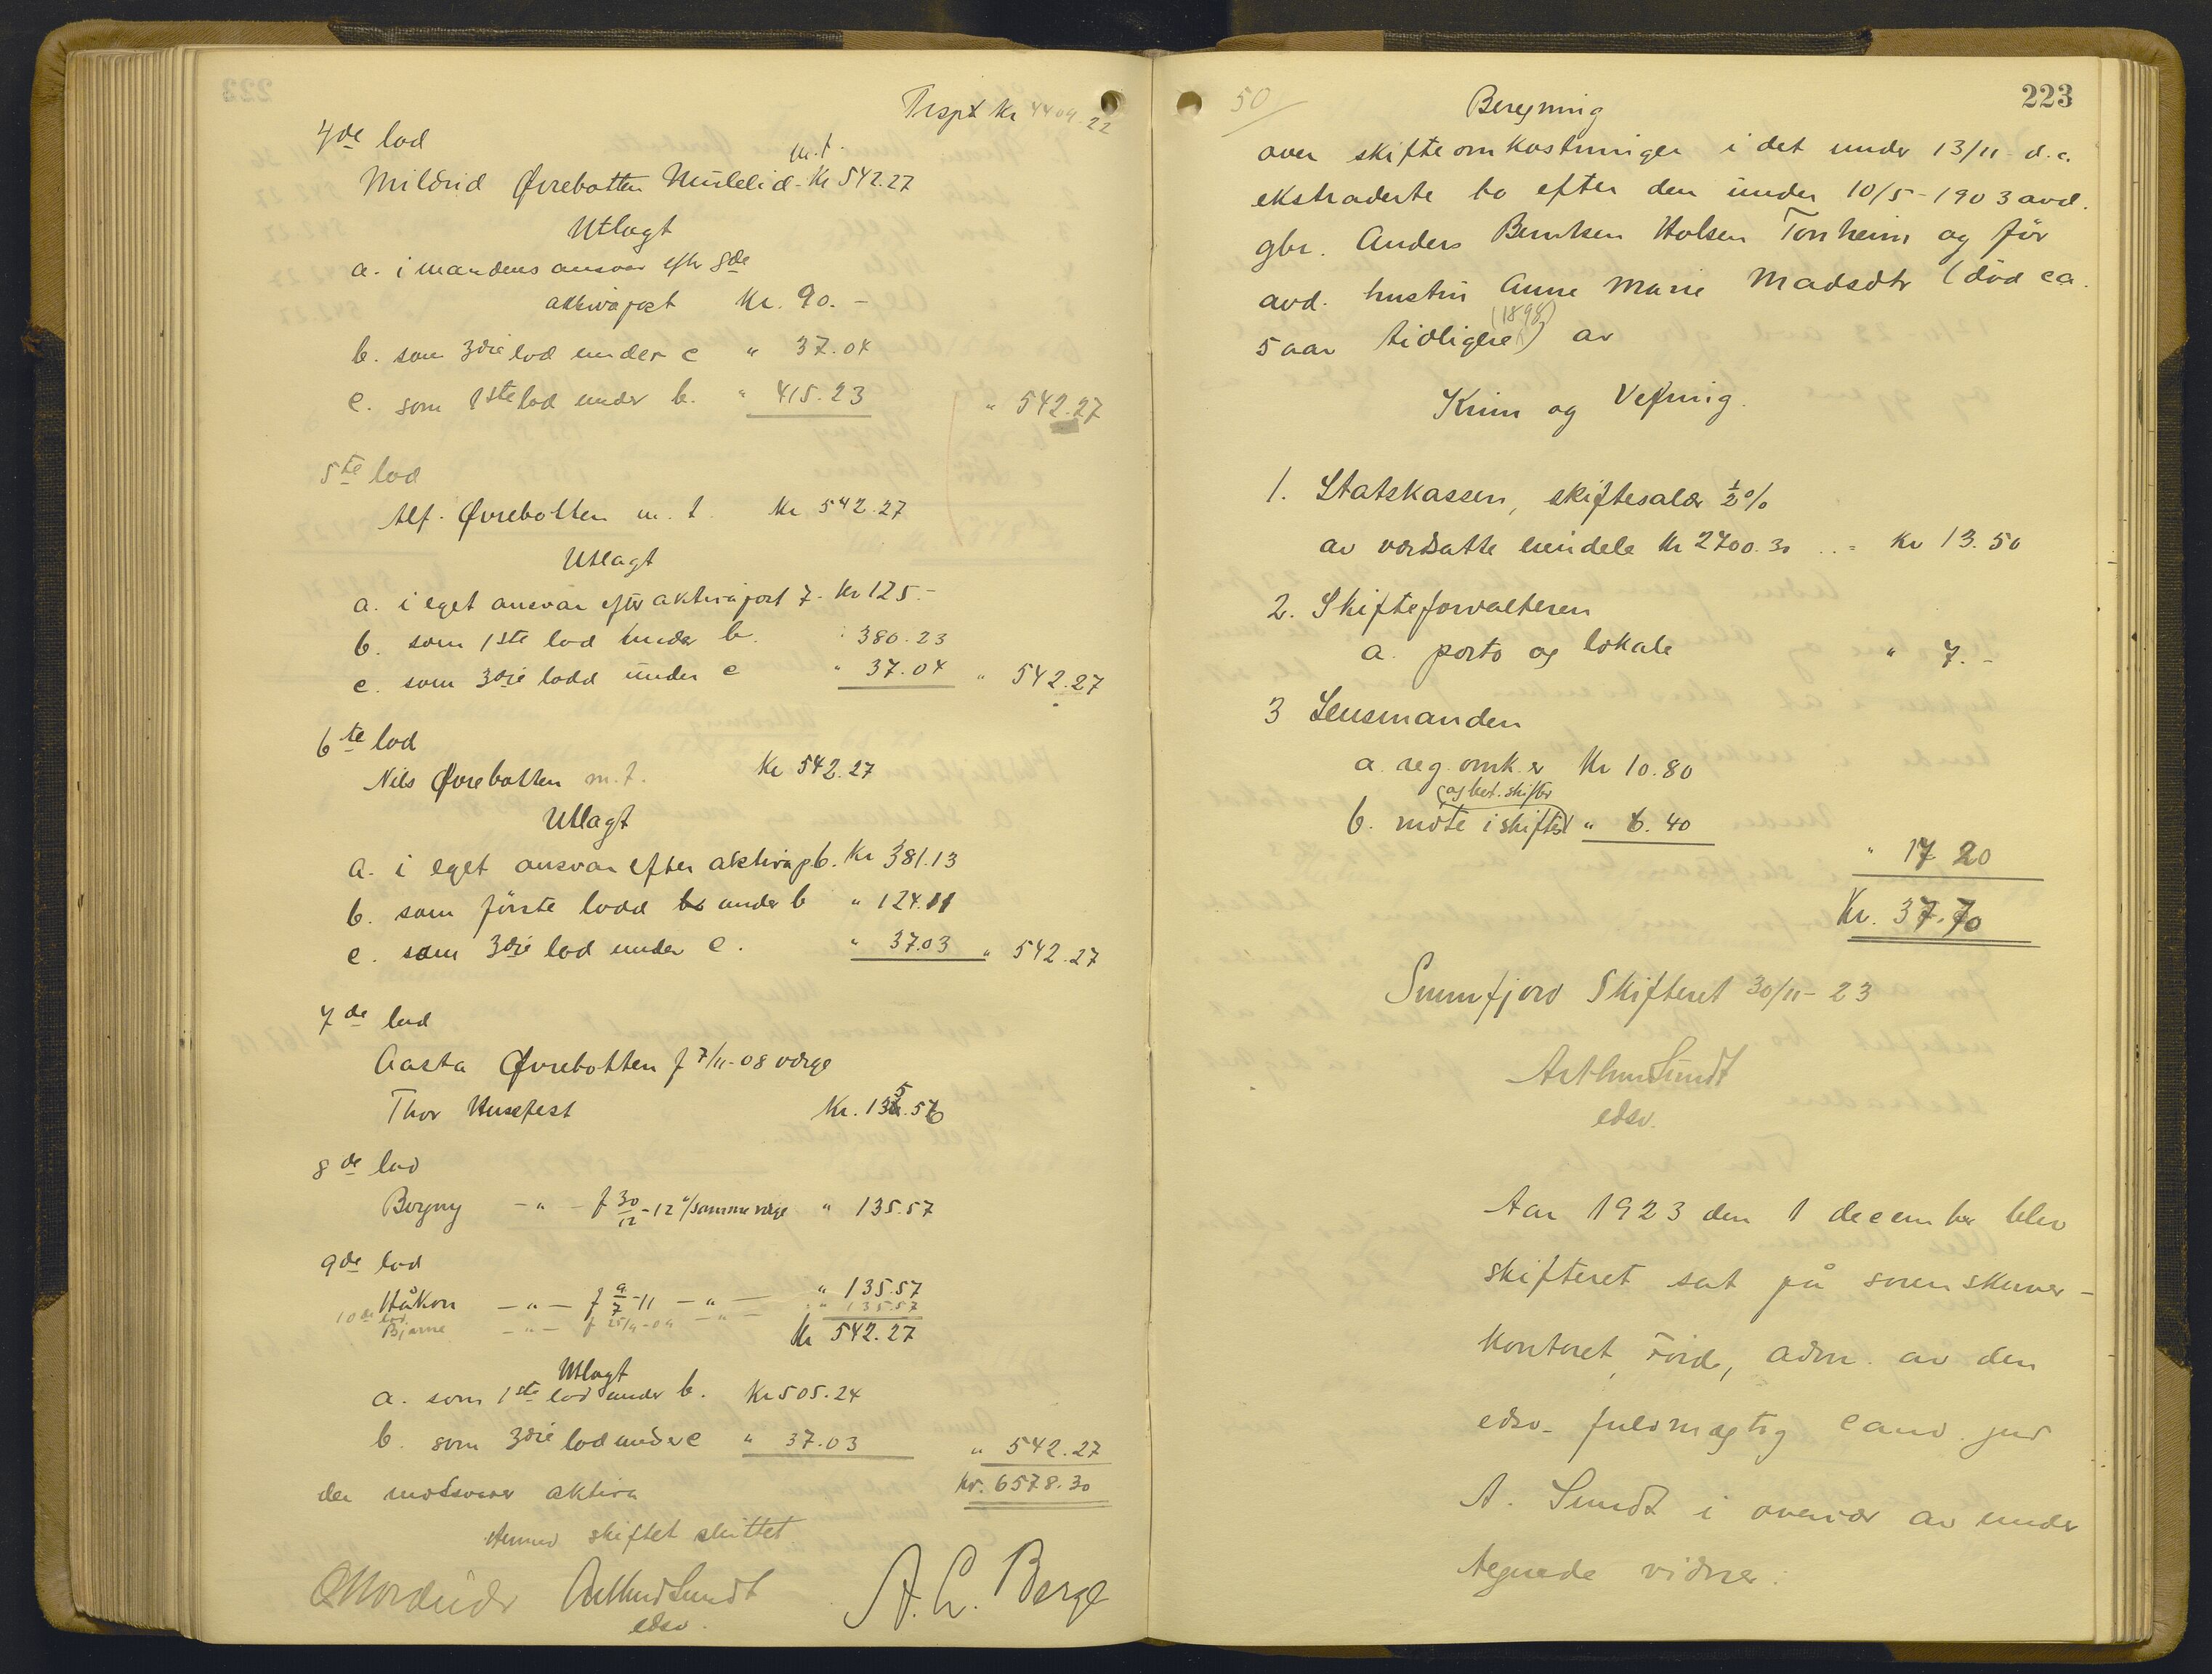 Trspt Kr 4409.22
4de lod
m.t.
Mildrid Øvrebotten Mulelid - Kr 542.27
Utlagt
a. i mandens ansvar efter 8de
aktivapost Kr. 90.-
b. som 3die lod under c " 37.04
c. som 1ste lod under b. " 415.23 " 542.27
5te lod
Alf. Øvrebotten m.t. Kr 542.27
Utlagt
a. i eget ansvar efter aktivapost 7 - Kr 125.-
b. som 1ste lod under b. " 380.23
c. som 3die lodd under c " 37.04 " 542.27
6te lod
Nils Øvrebotten m.t. Kr 542.27
Utlagt
a. i eget ansvar efter aktivap 6. Kr 381.13
b. som første lodd under b " 124.11
c. som 3die lod under c. " 37.03 " 542.27
7de lod
Aasta Øvrebotten f 7/11-08 værge
Thor Husefest Kr. 135.56
8de lod
Borgny -"- f 30/12-12 "/samme værge " 135.57
9de lod
Håkon -"- f 9/7-11 -"- " 135.57
10de lod
Bjarne -"- f 25/4-04 -"- " 135.57
Kr 542.27
Utlagt
a. som 1ste lod under b. Kr 505.24
b. som 3die lod under c " 37.03 " 542.27
der motsvarer aktiva Kr. 6578.30
Hermed skiftet sluttet
Arthur Sundt A. L. Berge
edsv.
50/
223
Beregning
over skifteomkostninger i det under 13/11 d.a.
ekstraderte bo efter den under 10/5-1903 avd.
gbr. Anders Berntsen Holsen Tonheim og før
avd. hustru Anne Marie Madsdtr (død ca.
5 aar tidligere (1898)) av
Krim og Vefring.
1. Statskassen, skiftesalær ½%
av værdsatte eiendele Kr 2700.30 .. = Kr 13.50
2. Skifteforvalteren
a. porto og lokale " 7.-
3 Lensmanden
a. reg. omk. er Kr 10.80
og bet. skifter
b. møte i skiftet " 6.40
" 17 20
Kr. 37.70
Sunnfjord Skifteret 30/11-23
Arthur Sundt
edsv.
Aar 1923 den 1 december blev
skifteret sat på sorenskriver-
kontoret, Førde, adm. av den
edsv. fuldmægtig cand. jur
A. Sundt i overvær av under
tegnede vidner: